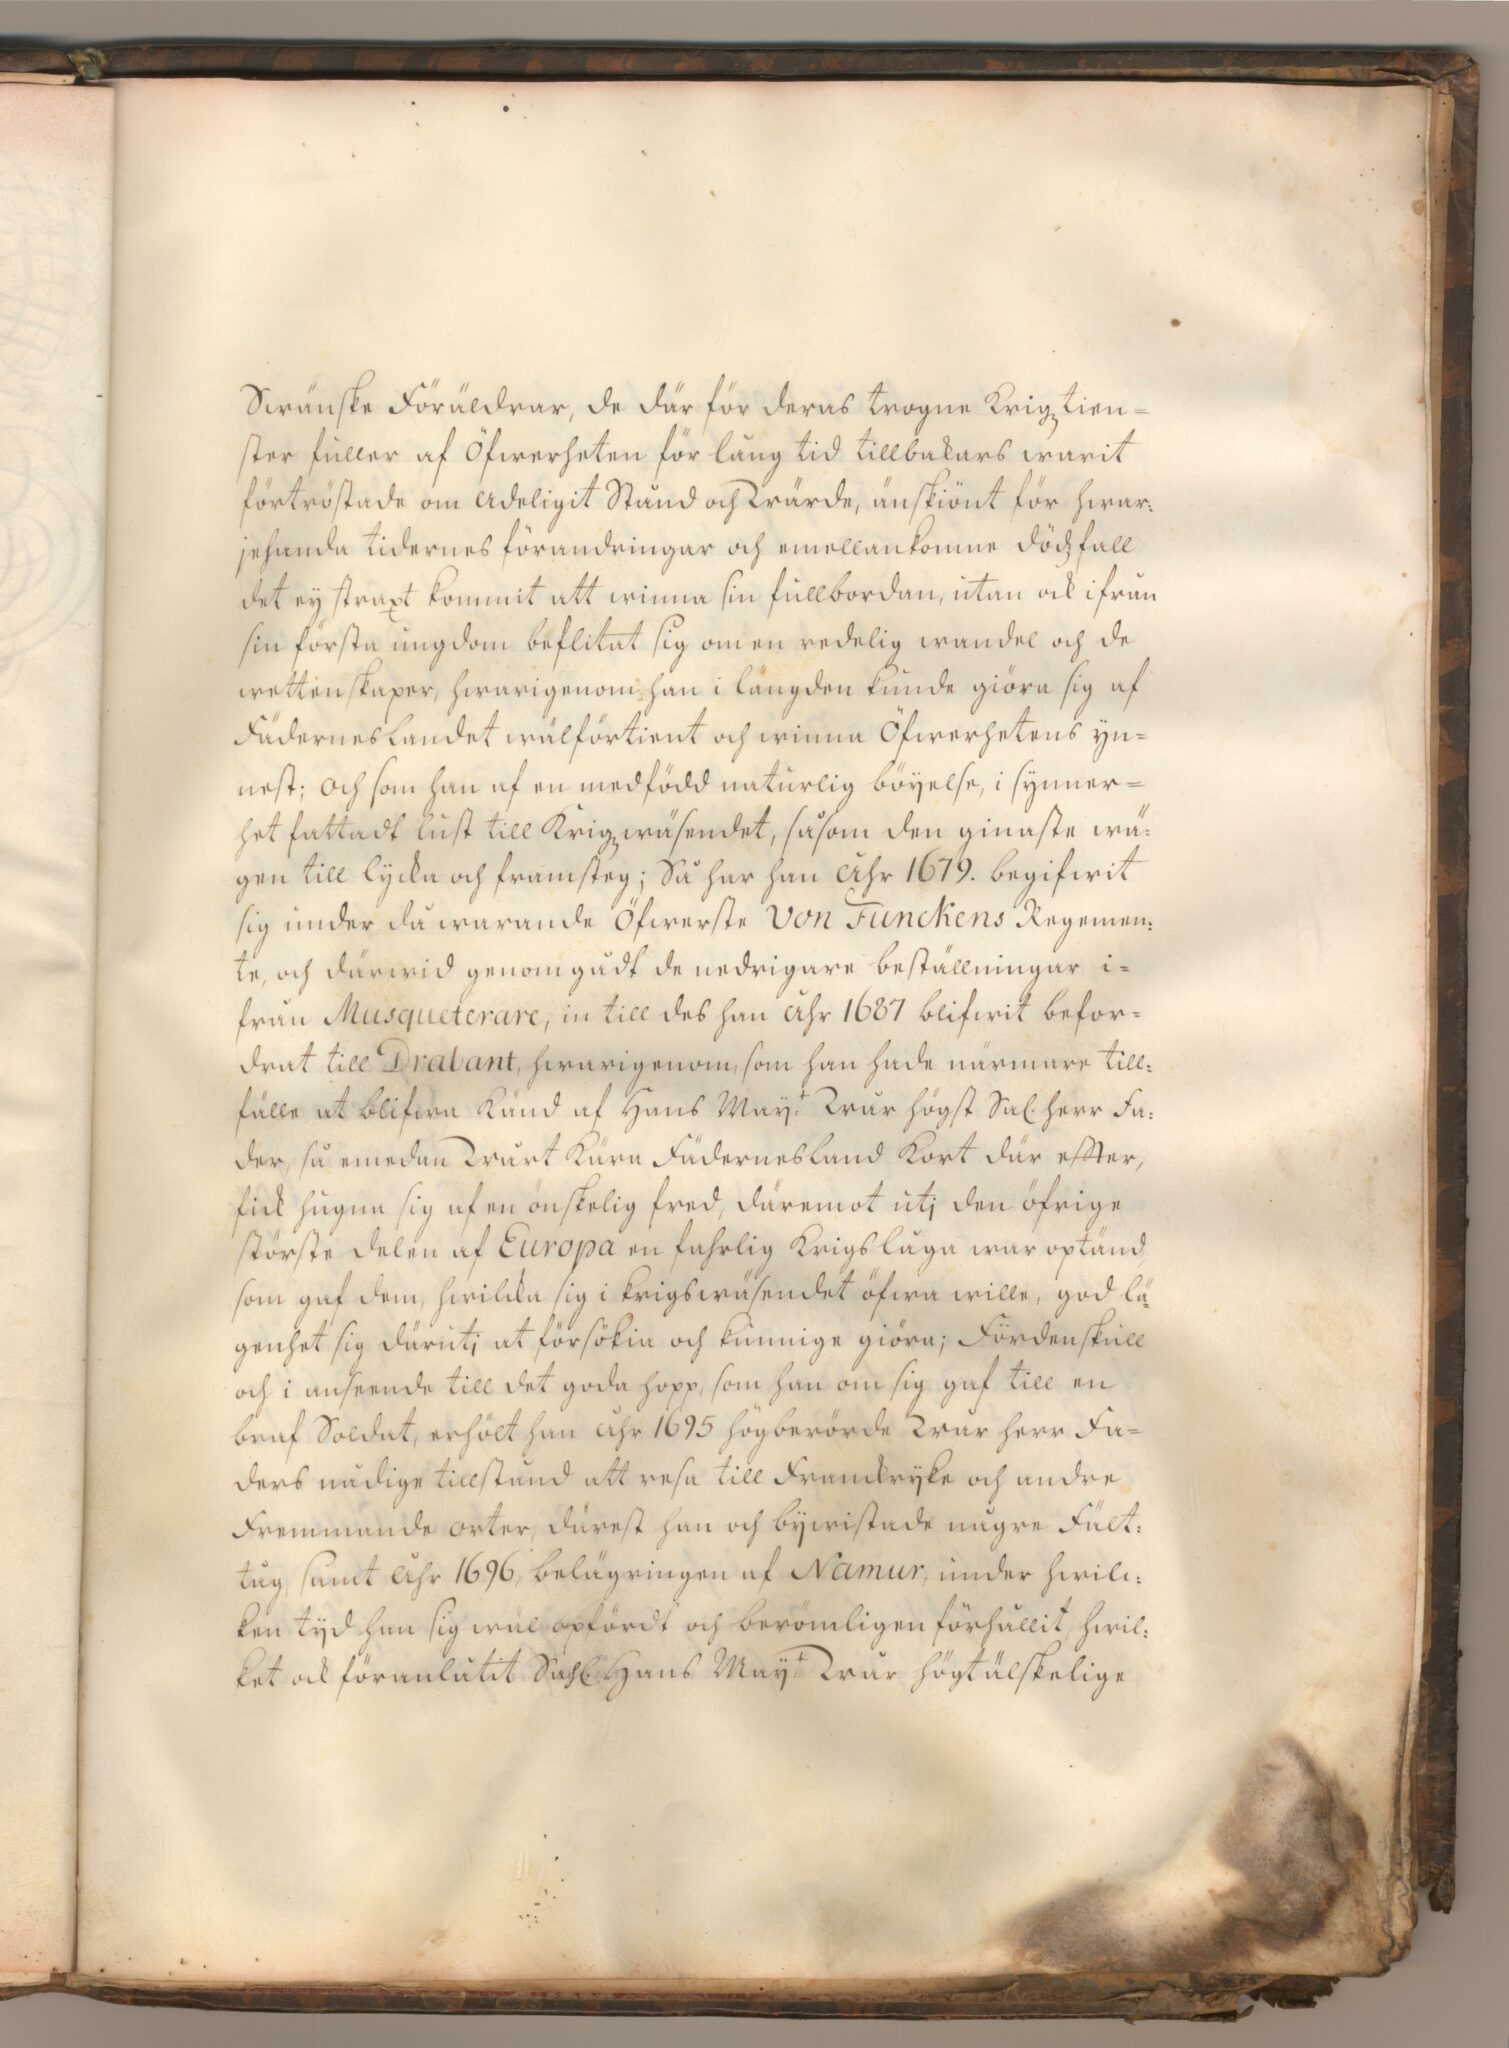 Swänske Föräldrar, de där för deras trogne Krigztien=
ster fuller af Öfwerheten för lång tid tillbakars warit
förtröstade om Adeligit Stånd och Wärde, änskiönt för hwar:
jehanda tidernes förandringar och emellankomne dödzfall
det ey straxt kommit att winna sin fullbordan, utan ock ifrån
sin första ungdom beflitat sig om en redelig wandel och de
wettenskaper, hwarigenom han i längden kunde giöra sig af
Fäderneslandet wälförtient och winna Öfwerhetens yn=
nest; och som han af en medfödd naturlig böyelse, i synner=
het fattadt lust till Krigzwäsendet, såsom den ginaste wä:
gen till lycka och framsteg; Så har han Åhr 1679. begifwit
sig under då warande Öfwerste Von Funckens Regemen:
te, och därwid genomgådt de nedrigare beställningar i=
från Musqueterare, in till des han Åhr 1687 blifwit befor=
drat till Drabant, hwarigenom, som han hade närmare till:
fälle at blifwa Känd af Hans Maytt Wår högst Sal. herr Fa:
der, så emedan Wårt Kära Fädernesland Kort där effter,
fick hugna sig af en önskelig fred, däremot utj den öfrige
störste delen af Europa en fahrlig Krigslåga war optänd
som gaf dem, hwilcka sig i krigswäsendet öfwa wille, god lä=
genhet sig därutj at försökia och kunnige giöra; Fördenskull
och i anseende till det goda hopp, som han om sig gaf till en
braf Soldat, erhölt han Åhr 1695 högberörde Wår herr Fa=
ders nådige tillstånd att resa till Franckryke och andre
Fremmande orter, därest han och bywistade några Fält:
tåg, samt Åhr 1696, belägringen af Namur, under hwilc:
ken tyd han sig wäl opfördt och berömligen förhållit, hwil:
ket ock föranlåtit Sahl. Hans Maytt Wår högtälskelige